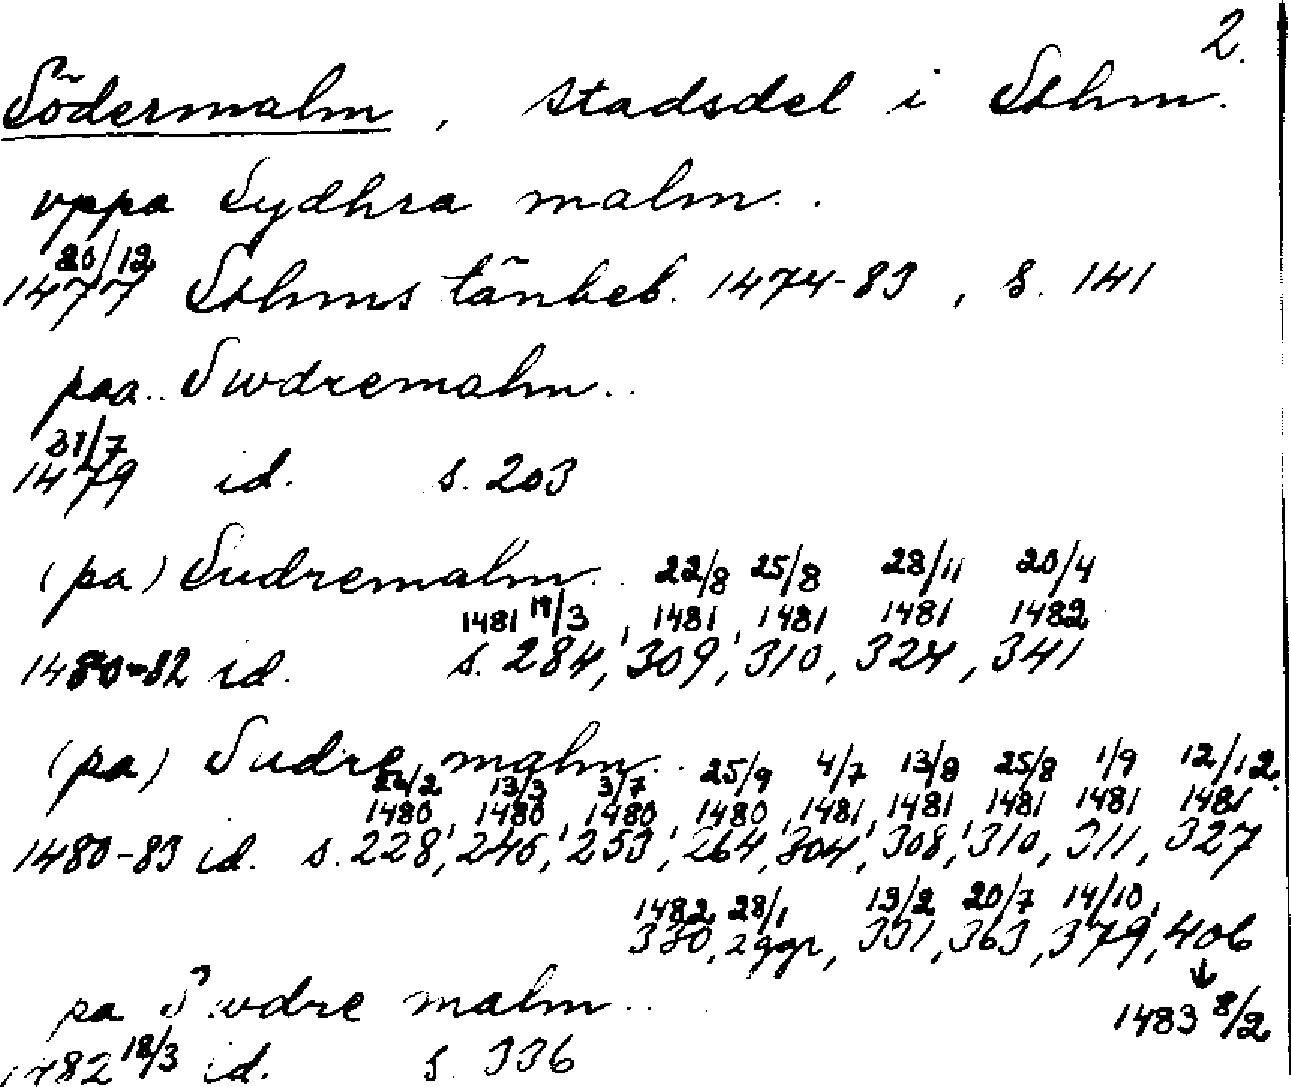 2.
Södermalm, stadsdel i Sthm.
vppa Sydhra malm..
20/12
1477 Sthms tänkeb. 1474-83, s. 141
paa.. Swdremalm..
31/7
1479 id. s. 203
(pa) Sudremalm.. 22/8 25/8 28/11 20/4
1481 19/3, 1481, 1481 1481 1482
1480-82 id. s. 284, 309, 310, 324, 341
(pa) Sudre malm.. 25/9 4/7 13/8 25/8 1/9 12/12
24/2 13/3 3/7
1480, 1480, 1480, 1480, 1481, 1481, 1481 1481 1481
1480-83 id. s. 228, 246, 253, 264, 304, 308, 310, 311, 327
1482 28/1 13/2 20/7 14/10
330, 2 ggr, 331, 363, 379, 406
↓
pa Swdre malm.. 1483 8/2
1482 18/3 id. s. 336